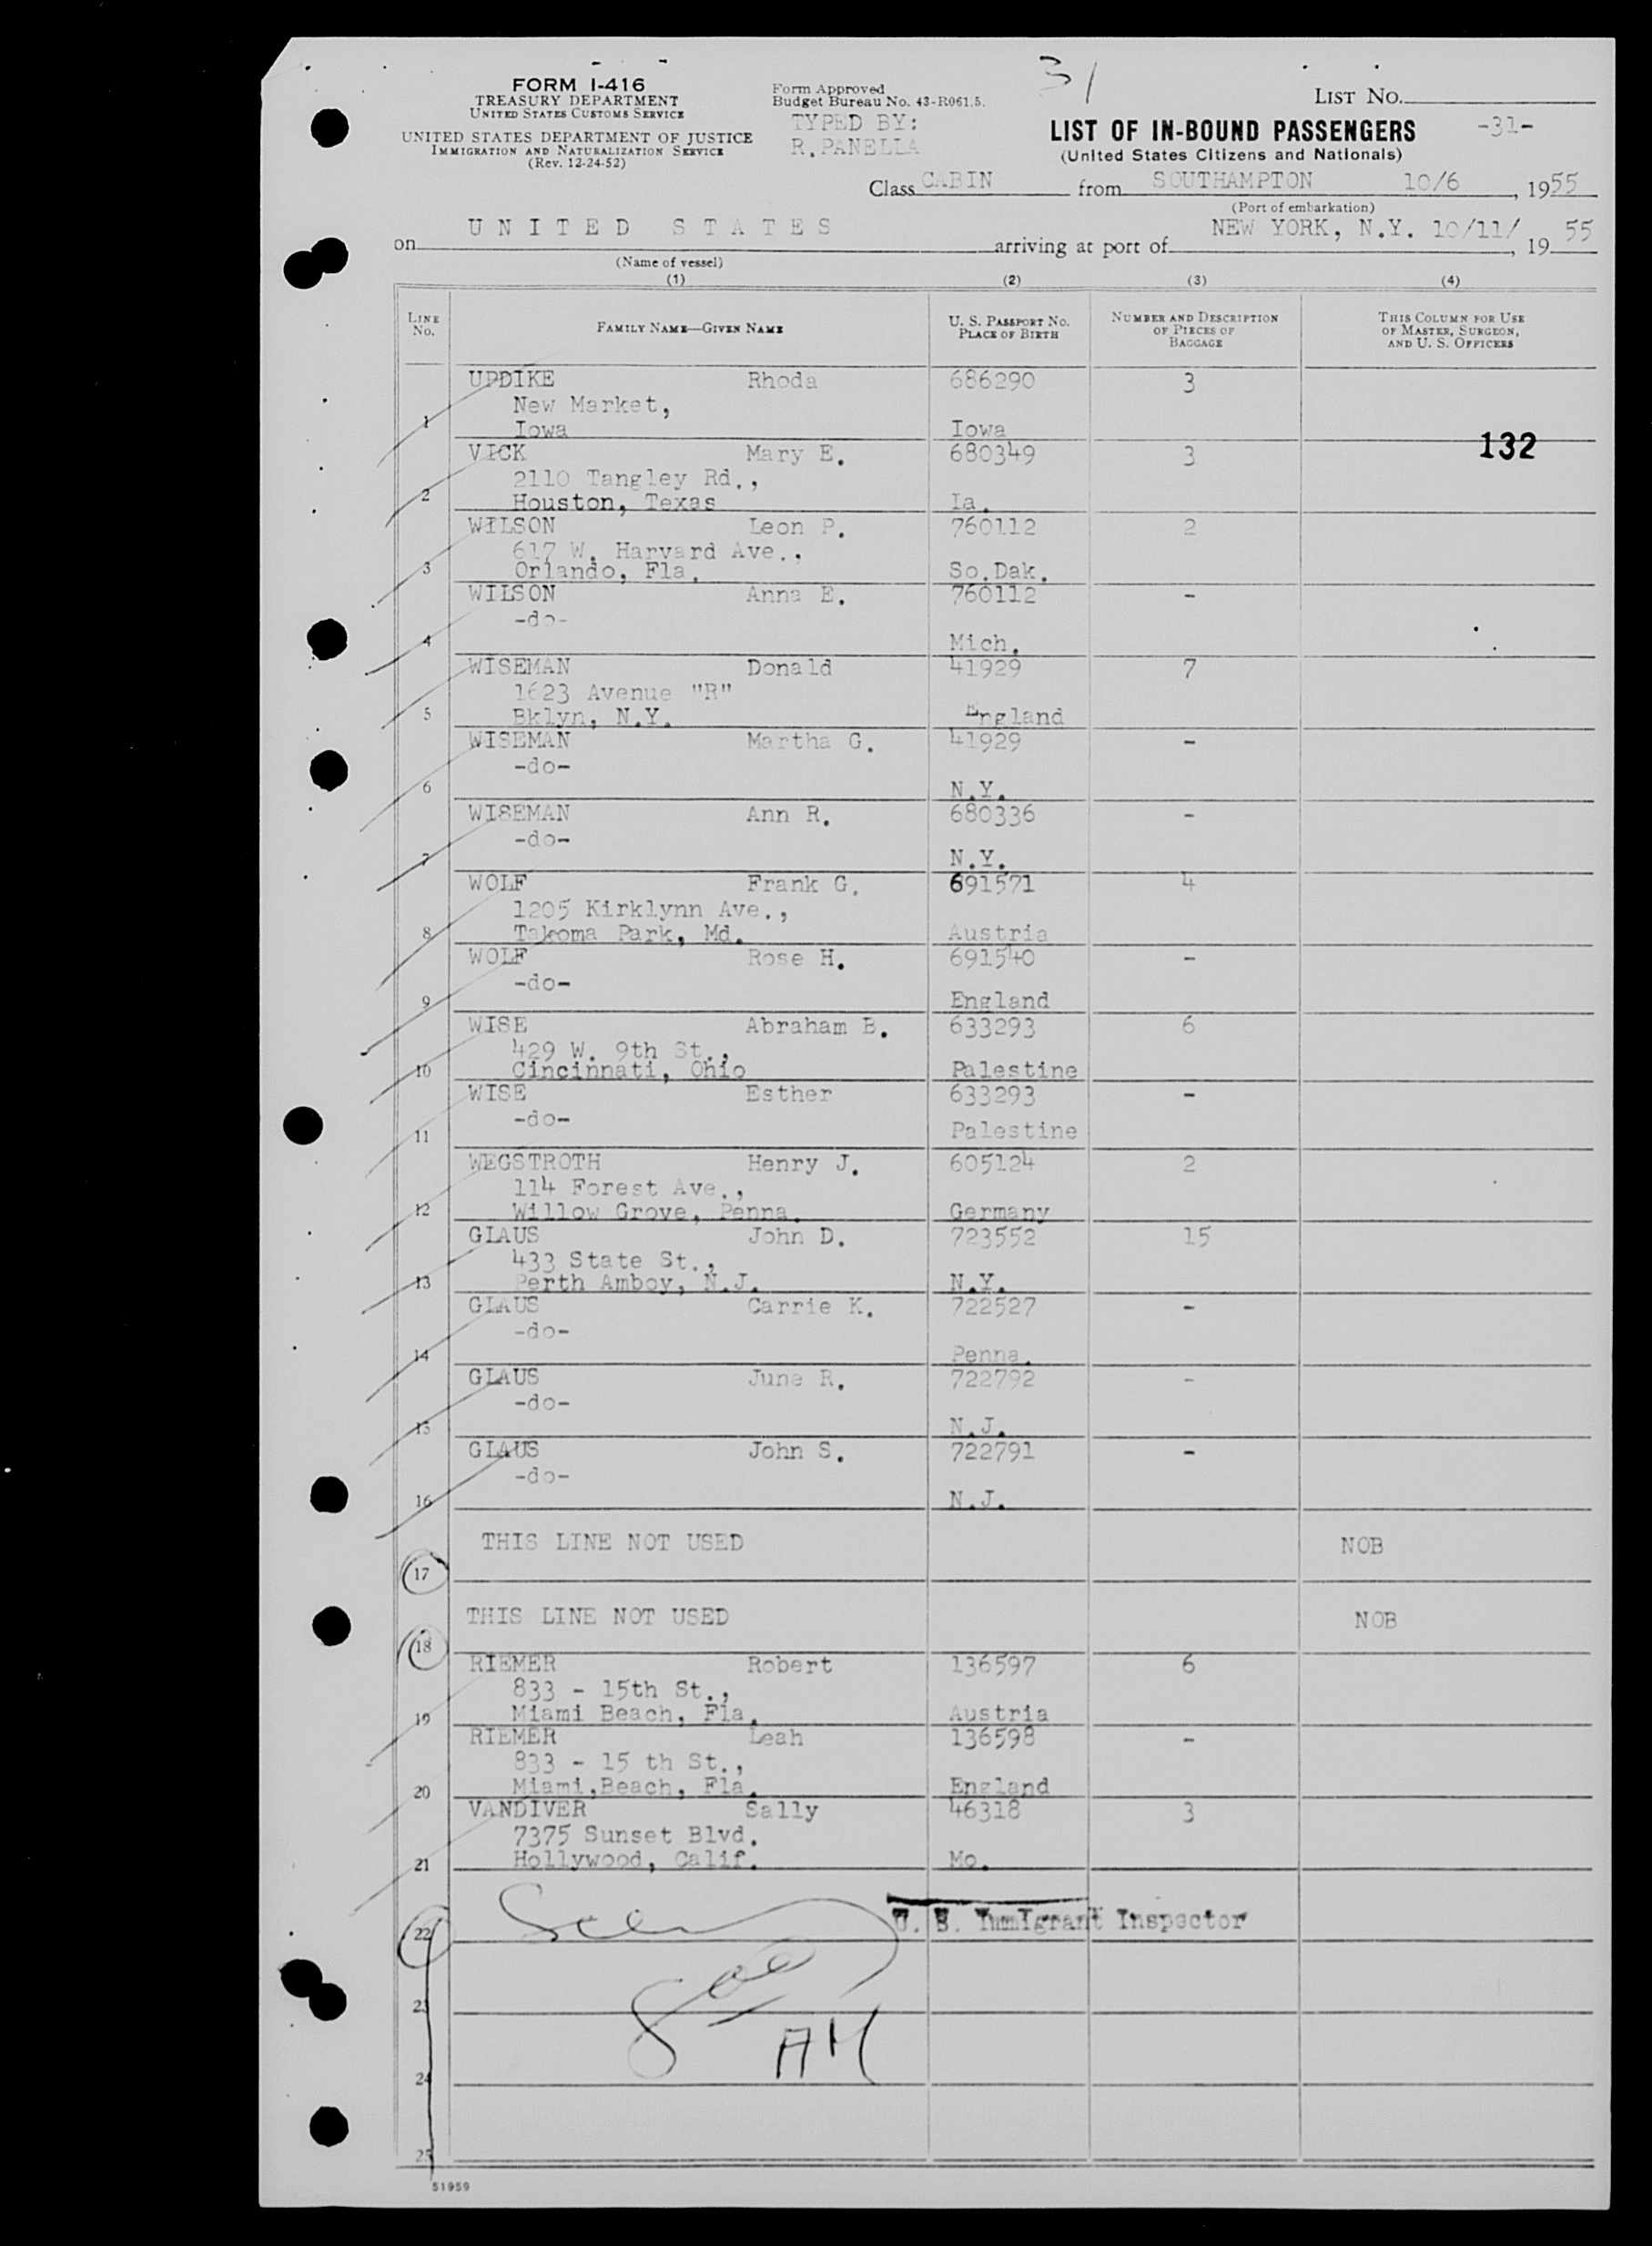 31
FORM I-416
TREASURY DEPARTMENT
UNITED STATES CUSTOMS SERVICE
UNITED STATES DEPARTMENT OF JUSTICE
IMMIGRATION AND NATURALIZATION SERVICE
(Rev. 12-24-52)
Form Approved
Budget Bureau No. 43-R061.5.
TYPED BY:
R.PANELLA
LIST NO.
LIST OF IN-BOUND PASSENGERS -31-
(United States Citizens and Nationals)
Class CABIN from SOUTHAMPTON 10/6, 1955
(Port of embarkation)
on UNITED STATES arriving at port of NEW YORK, N.Y. 10/11/, 19 55
(Name of vessel)
(1) (2) (3) (4)
LINE NO. FAMILY NAME—GIVEN NAME U. S. PASSPORT NO. PLACE OF BIRTH NUMBER AND DESCRIPTION OF PIECES OF BAGGAGE THIS COLUMN FOR USE OF MASTER, SURGEON, AND U. S. OFFICERS
UPDIKE Rhoda 686290 3
New Market,
1 Iowa Iowa
132
VICK Mary E. 680349 3
2110 Tangley Rd.,
2 Houston, Texas Ia.
WILSON Leon P. 760112 2
617 W. Harvard Ave.,
3 Orlando, Fla. So.Dak.
WILSON Anna E. 760112 -
-do-
4 Mich.
WISEMAN Donald 41929 7
1623 Avenue "R"
5 Bklyn, N.Y. England
WISEMAN Martha G. 41929 -
-do-
6 N.Y.
WISEMAN Ann R. 680336 -
-do-
7 N.Y.
WOLF Frank G. 691571 4
1205 Kirklynn Ave.,
8 Takoma Park, Md. Austria
WOLF Rose H. 691540 -
-do-
9 England
WISE Abraham B. 633293 6
429 W. 9th St.,
10 Cincinnati, Ohio Palestine
WISE Esther 633293 -
-do-
11 Palestine
WEGSTROTH Henry J. 605124 2
114 Forest Ave.,
12 Willow Grove, Penna. Germany
GLAUS John D. 723552 15
433 State St.,
13 Perth Amboy, N.J. N.Y.
GLAUS Carrie K. 722527 -
-do-
14 Penna.
GLAUS June R. 722792 -
-do-
15 N.J.
GLAUS John S. 722791 -
-do-
16 N.J.
THIS LINE NOT USED NOB
17
THIS LINE NOT USED NOB
18
RIEMER Robert 136597 6
833 - 15th St.,
19 Miami Beach, Fla. Austria
RIEMER Leah 136598 -
833 - 15 th St.,
20 Miami,Beach, Fla. England
VANDIVER Sally 46318 3
7375 Sunset Blvd.
21 Hollywood, Calif. Mo.
U. S. Immigrant Inspector
22
23
AM
24
25
51959